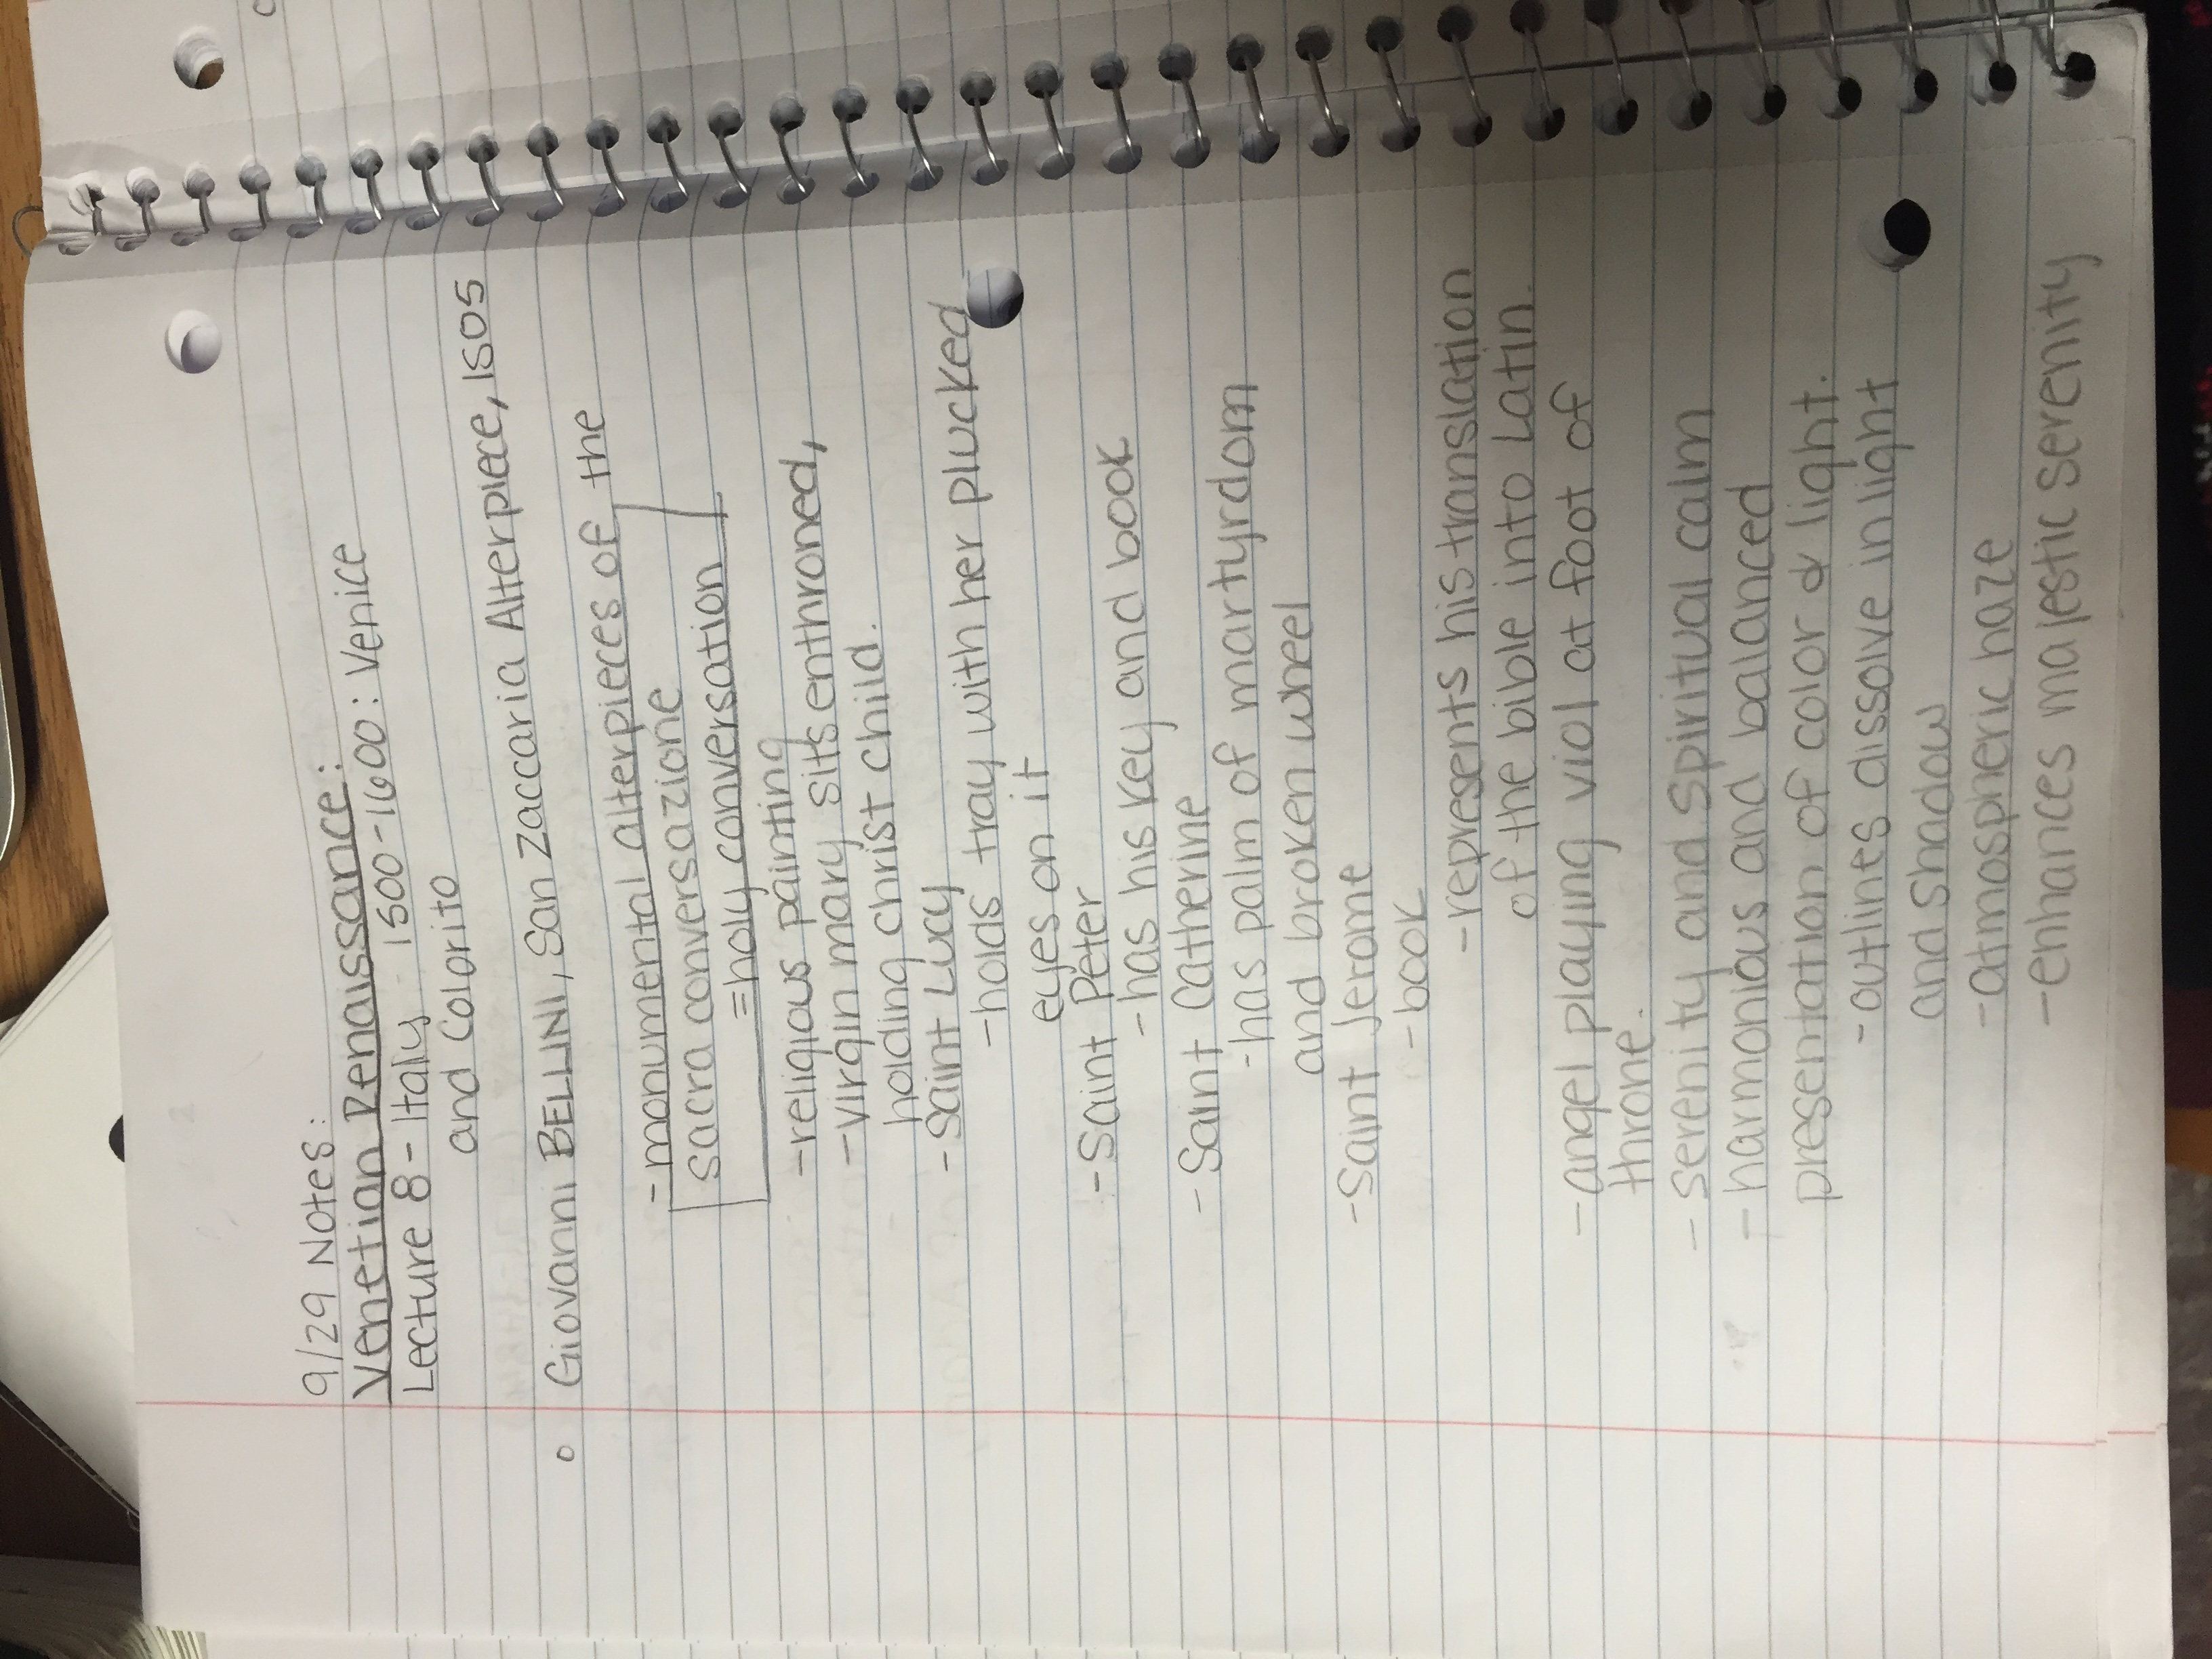 9/29 Notes:
Venetian Renaissance:
Lecture 8 - Italy 1500-1600: Venice
and Colorito
Giovanni BELLINI, San Zaccaria Alterpiece, 1505
- monumental alterpieces of the
sacra conversazione
= holy conversation
- religious painting
- virgin mary sits enthroned,
holding christ child.
- Saint Lucy
- holds tray with her plucked
eyes on it
- Saint Peter
- has his key and book
- Saint Catherine
- has palm of martyrdom
and broken wheel
- Saint Jerome
- book
- represents his translation
of the bible into Latin.
- angel playing viol at foot of
throne.
- serenity and spiritual calm
- harmonious and balanced
presentation of color & light.
- outlines dissolve in light
and shadow
- atmospheric haze
- enhances majestic serenity